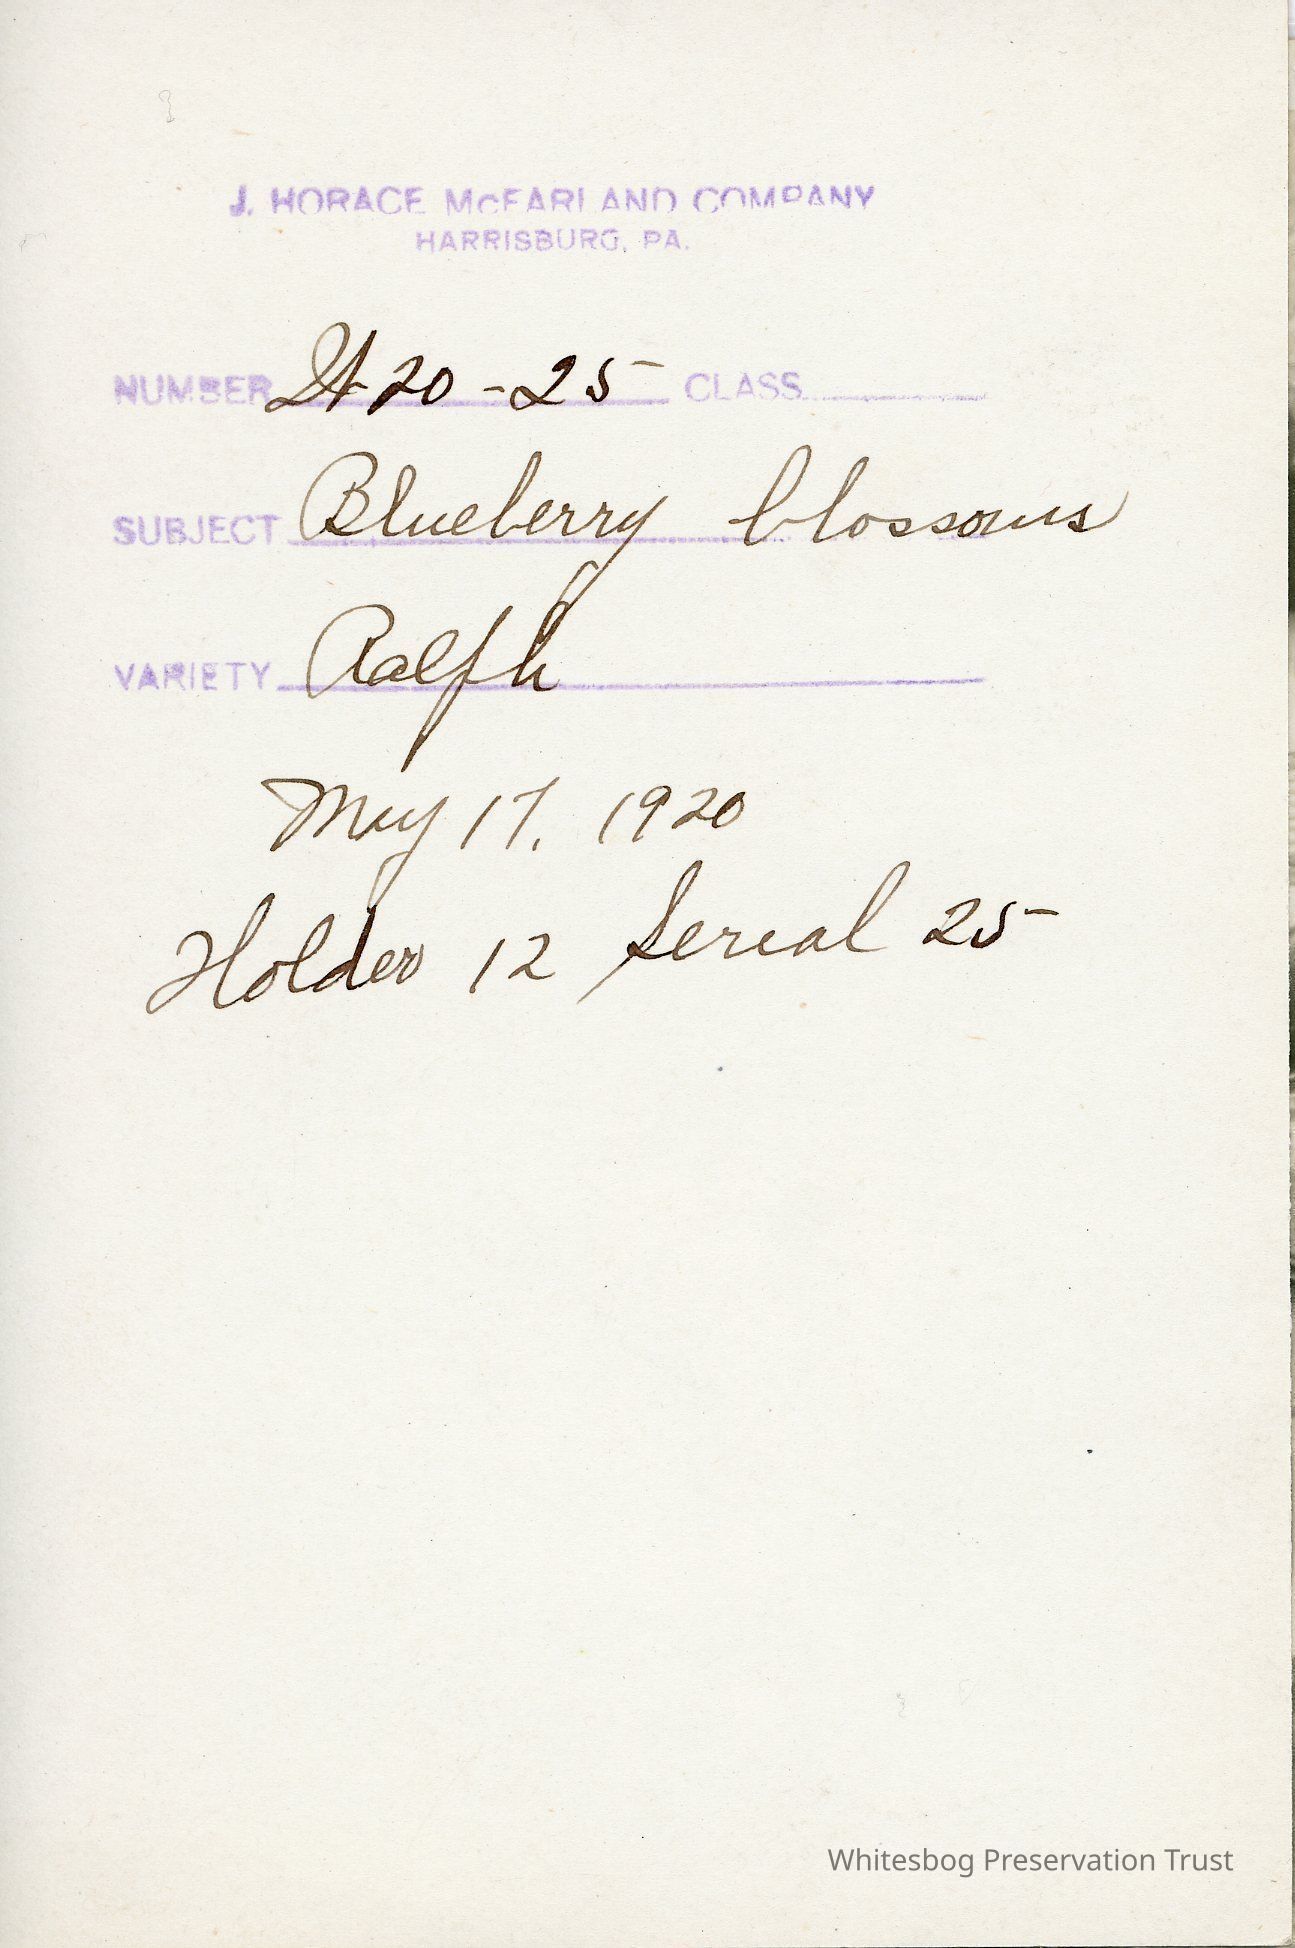 J. HORACE McFARLAND COMPANY
HARRISBURG, PA.
NUMBER 20-25 CLASS
SUBJECT Blueberry blossoms
VARIETY Ralph
May 17, 1920
Holder 12 Serial 25
Whitesbog Preservation Trust